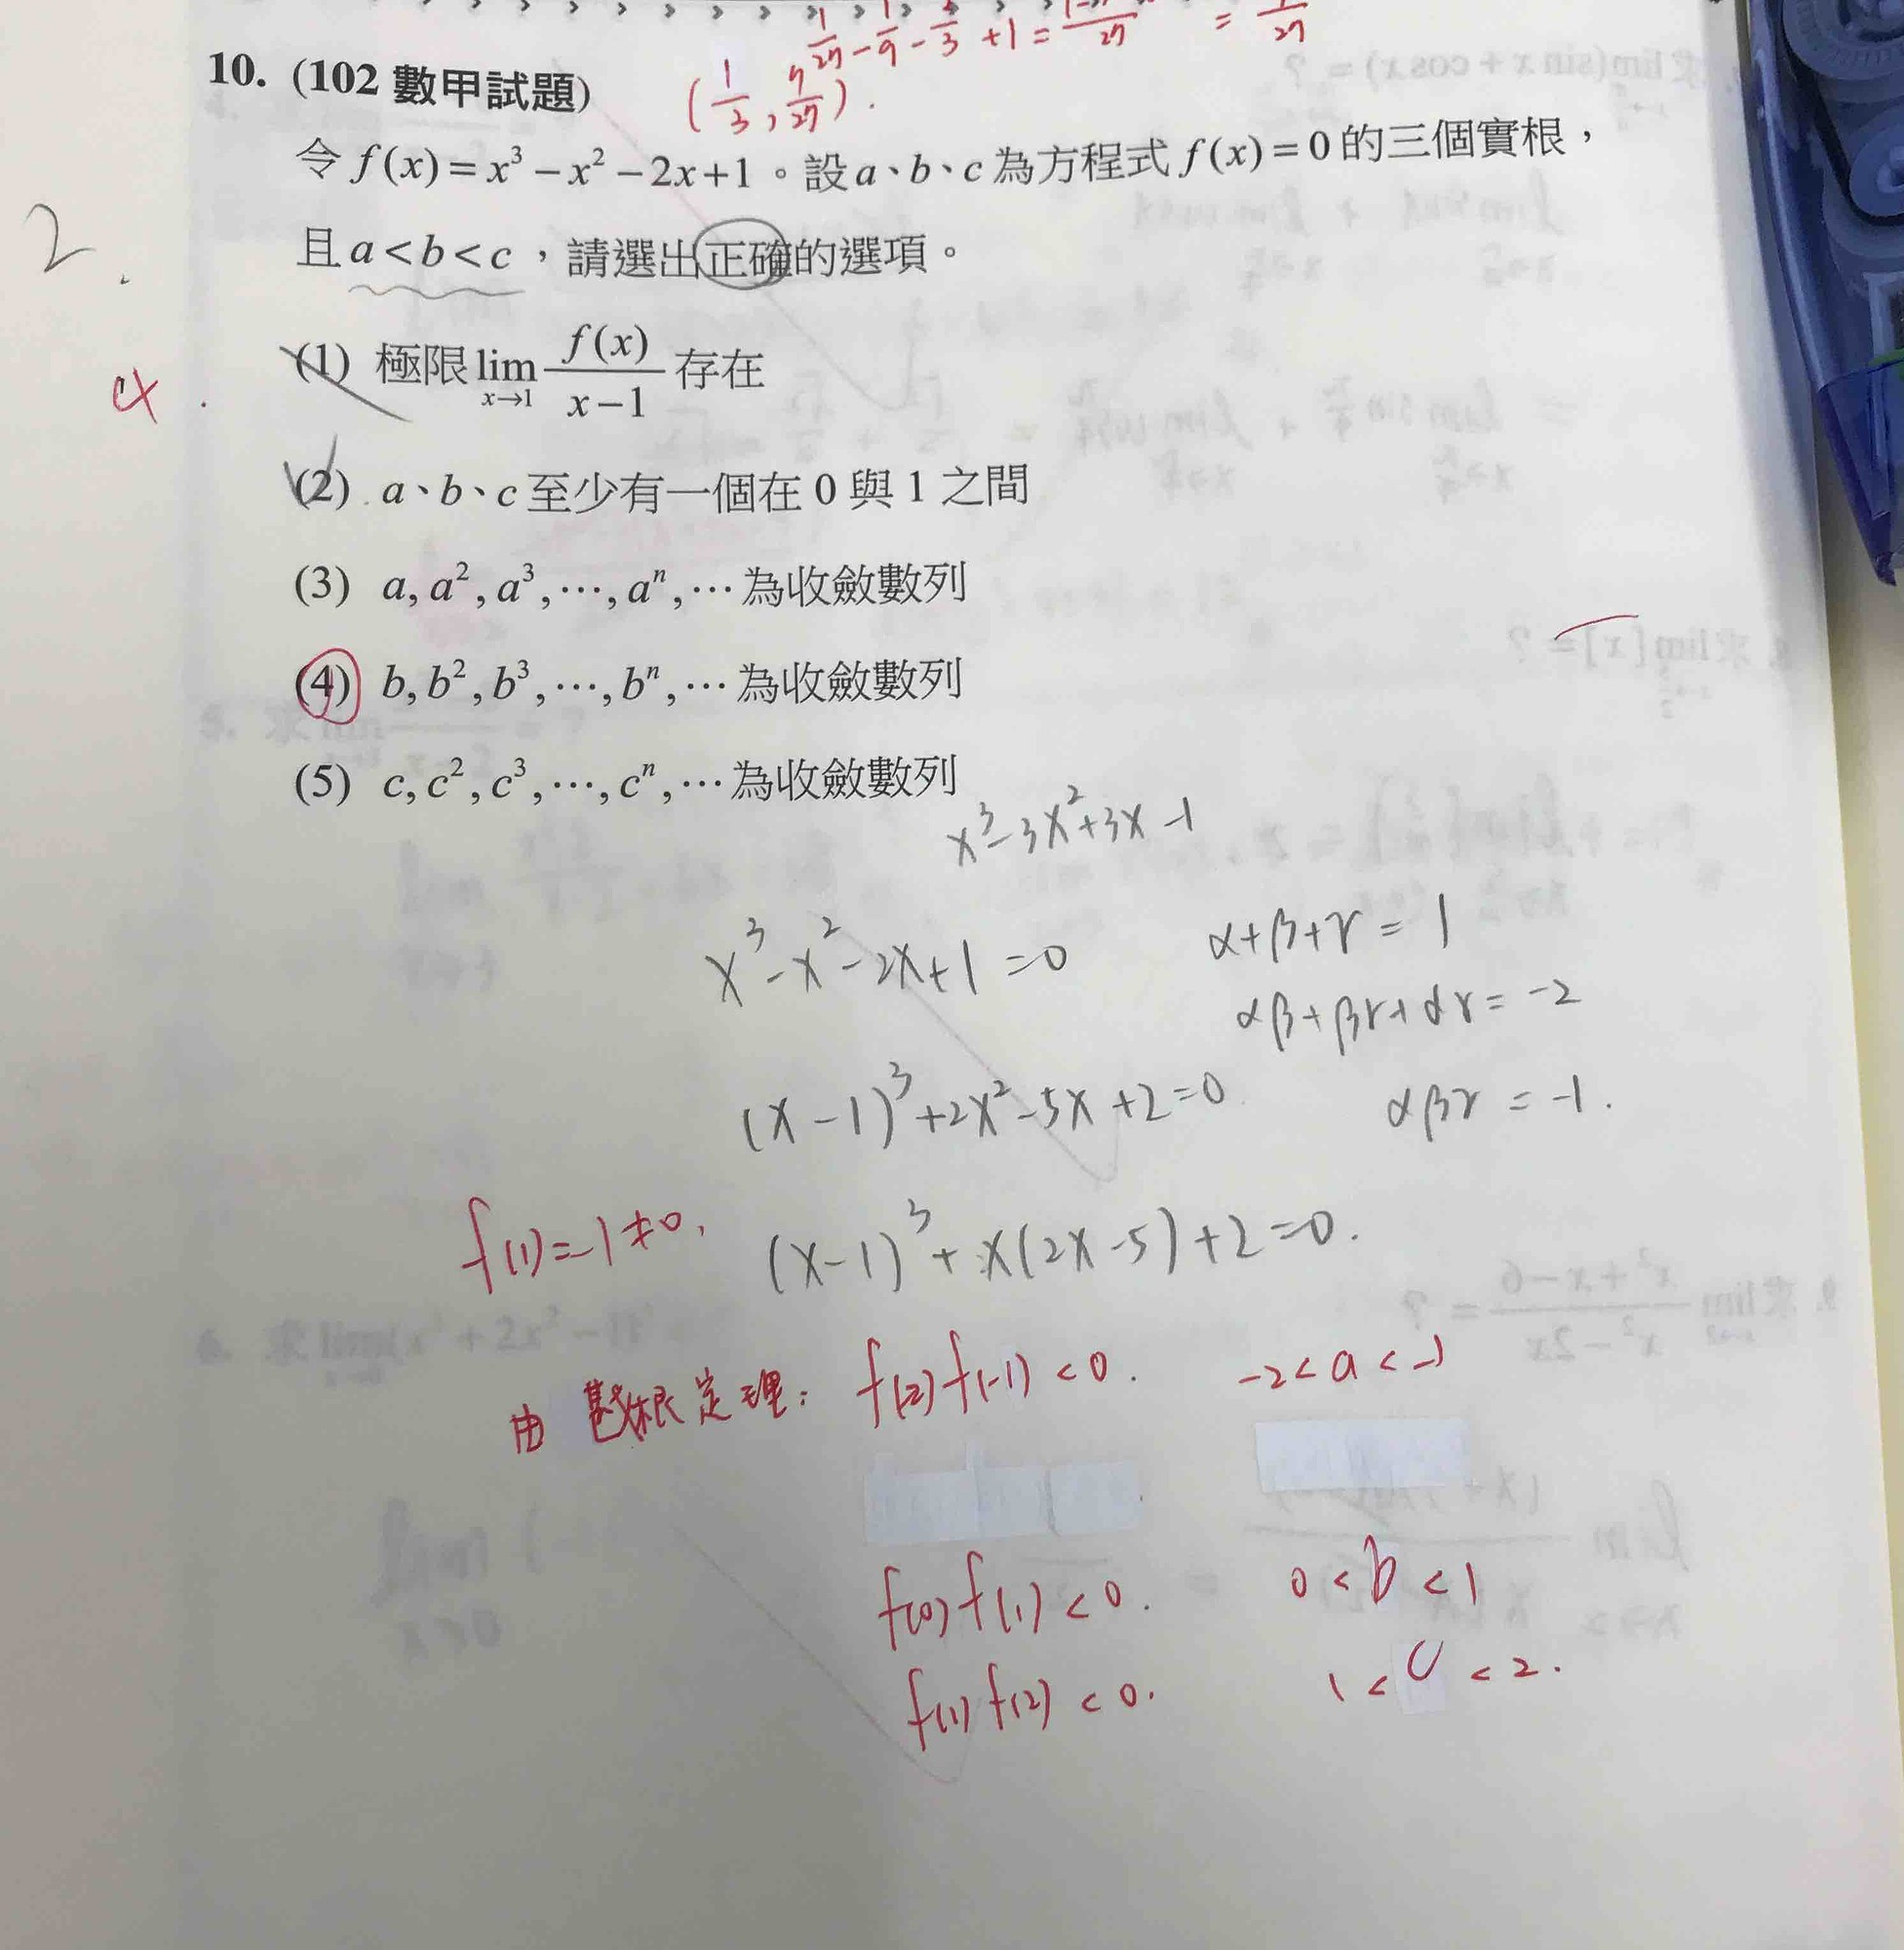 1/27 - 1/9 - 2/3 + 1 =
10. (102 數甲試題)
(1/3, 7/27).
令 f(x) = x³ − x² − 2x + 1。設 a、b、c 為方程式 f(x) = 0 的三個實根，
且 a < b < c，請選出正確的選項。
2.
4.
(1) 極限 lim x→1 f(x)/(x−1) 存在
(2) a、b、c 至少有一個在 0 與 1 之間
(3) a, a², a³, ⋯, aⁿ, ⋯ 為收斂數列
(4) b, b², b³, ⋯, bⁿ, ⋯ 為收斂數列
(5) c, c², c³, ⋯, cⁿ, ⋯ 為收斂數列
x³ - 3x² + 3x - 1
x³ - x² - 2x + 1 = 0
α + β + γ = 1
αβ + βγ + αγ = -2
(x - 1)³ + 2x² - 5x + 2 = 0
αβγ = -1.
f(1) = -1 ≠ 0,
(x - 1)³ + x(2x - 5) + 2 = 0.
由 勘根定理: f(-2) f(-1) < 0. -2 < a < -1
f(0) f(1) < 0. 0 < b < 1
f(1) f(2) < 0. 1 < c < 2.